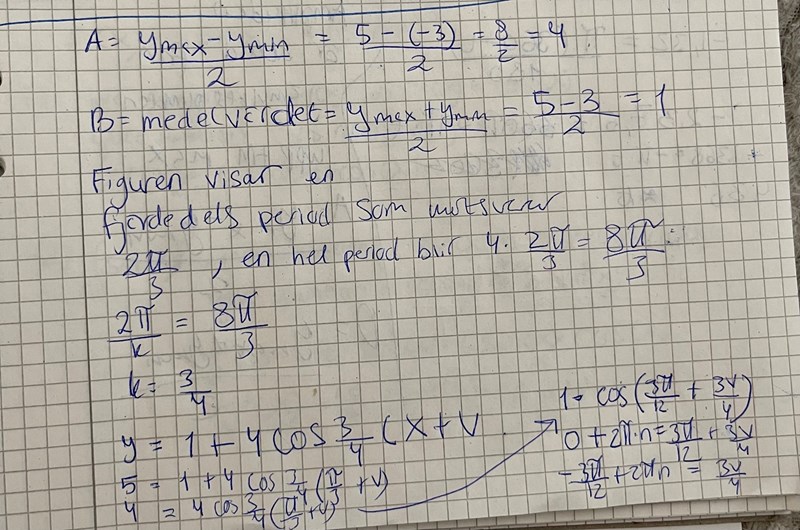 A = (ymax - ymin)/2 = (5 - (-3))/2 = 8/2 = 4
B = medelvärdet = (ymax + ymin)/2 = (5 - 3)/2 = 1
Figuren visar en
fjärdedels period som motsvarar
2π/3, en hel period blir 4 · 2π/3 = 8π/3 :
2π/k = 8π/3
k = 3/4
y = 1 + 4 cos 3/4 (x + v
5 = 1 + 4 cos 3/4 (π/3 + v)
4 = 4 cos 3/4 (π/3 + v)
1 = cos(3π/12 + 3v/4)
0 + 2π·n = 3π/12 + 3v/4
-3π/12 + 2πn = 3v/4